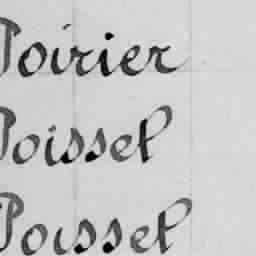 Poirier
Poissel
Poissel